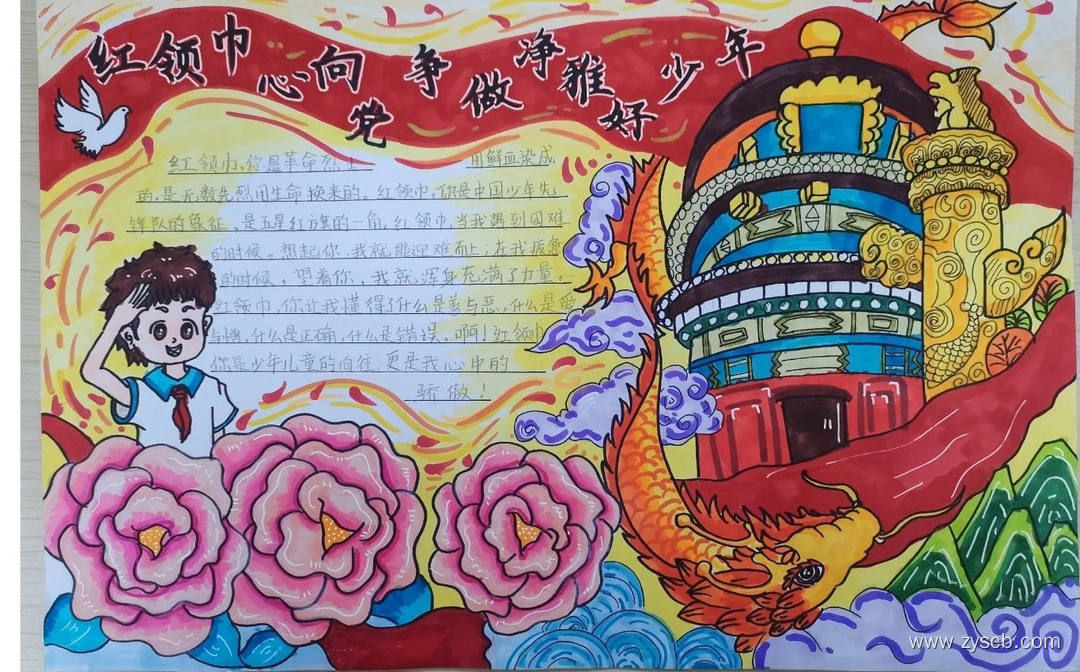 红领巾心向党 争做净雅好少年
红领巾,你是革命烈士 用鲜血染成
的,是无数先烈用生命换来的。红领巾,你是中国少年先
锋队的象征,是五星红旗的一角,红领巾,当我遇到困难
的时候。想起你,我就能迎难而上;在我疲惫
的时候,望着你,我就浑身充满了力量。
红领巾,你让我懂得了什么是善与恶,什么是爱
与憎,什么是正确,什么是错误。啊!红领巾
你是少年儿童的向往,更是我心中的
骄傲!
www.zyscb.com